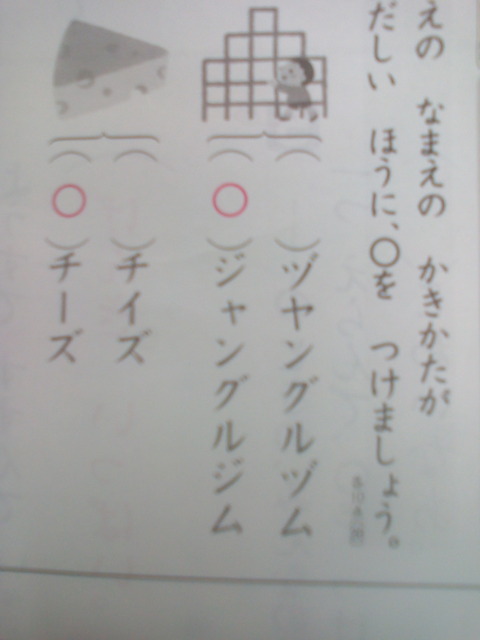 えの なまえの かきかたが
だしい ほうに、○を つけましょう。
( )ヅヤングルヅム
(○)ジャングルジム
( )チイズ
(○)チーズ